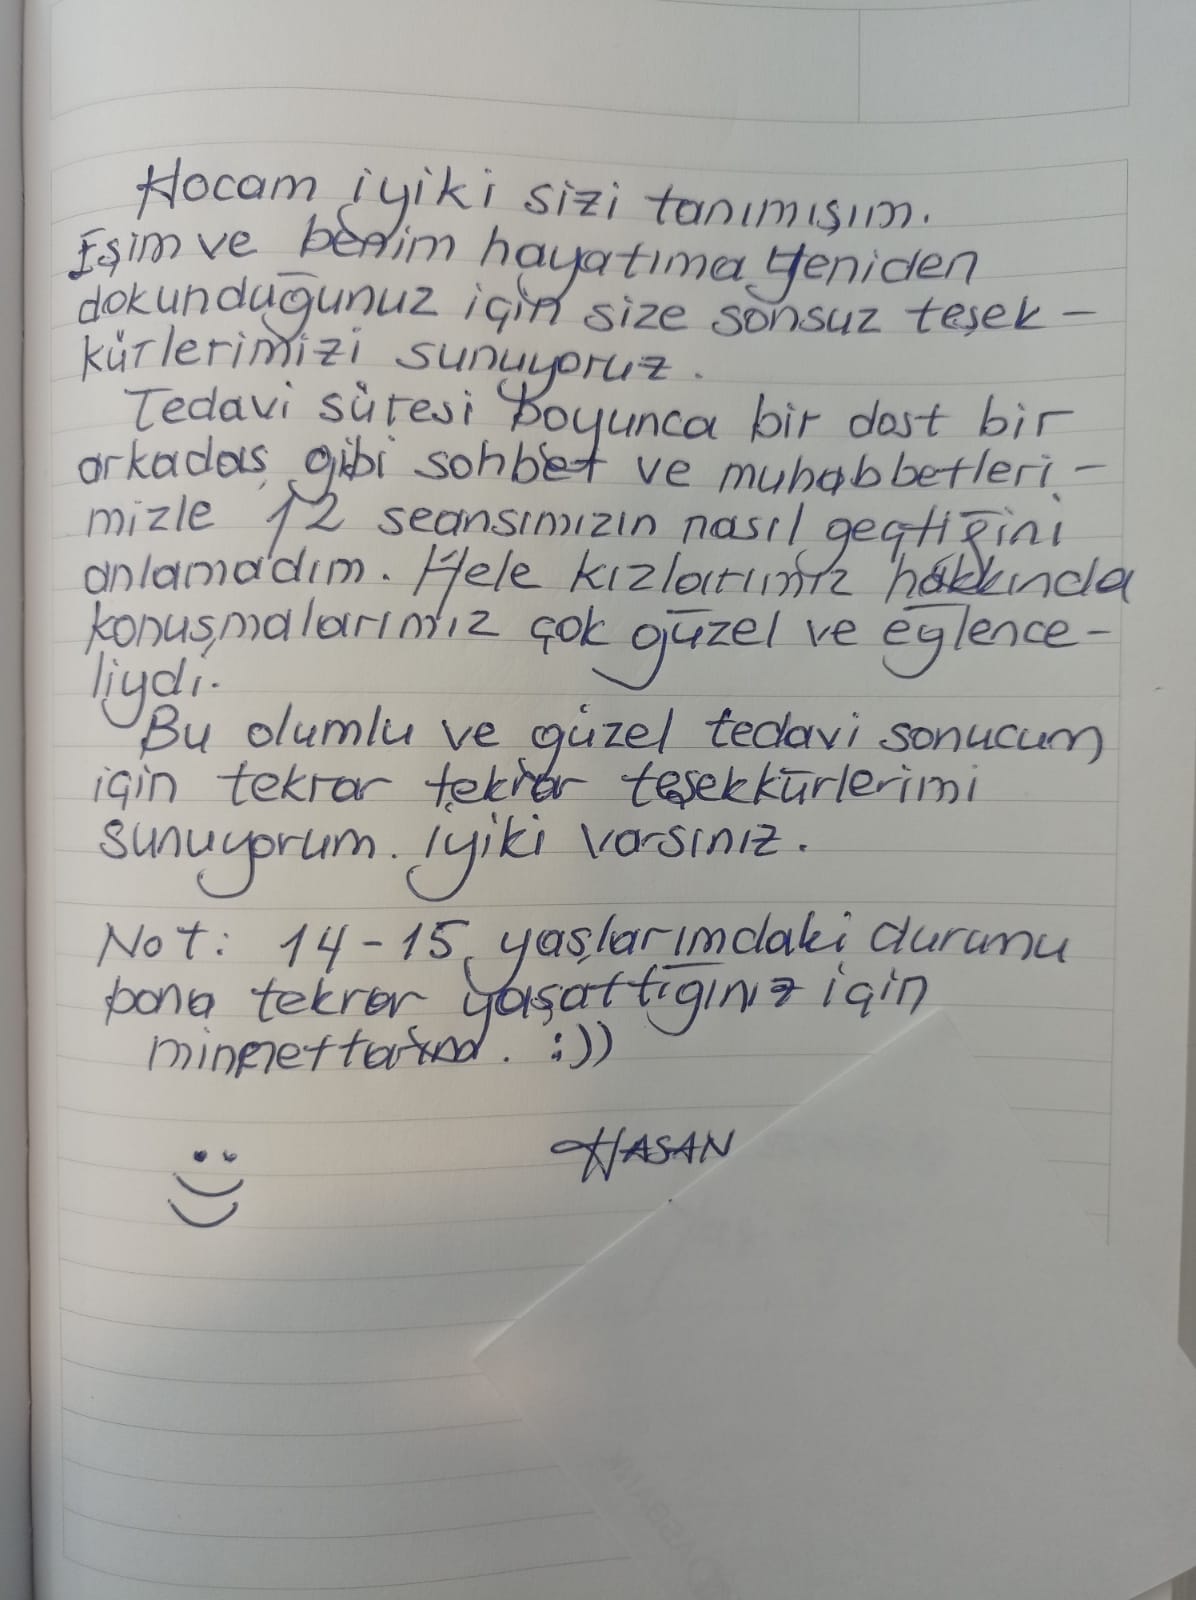 Hocam iyiki sizi tanımışım.
Eşim ve benim hayatıma yeniden
dokunduğunuz için size sonsuz teşek-
kürlerimizi sunuyoruz.
Tedavi süresi boyunca bir dost bir
arkadaş gibi sohbet ve muhabbetleri-
mizle 12 seansımızın nasıl geçtiğini
anlamadım. Hele kızlarımız hakkında
konuşmalarımız çok güzel ve eğlence-
liydi.
Bu olumlu ve güzel tedavi sonucum
için tekrar tekrar teşekkürlerimi
sunuyorum. iyiki varsınız.
Not: 14-15 yaşlarımdaki durumu
bana tekrar yaşattığınız için
minnettarım. :))
HASAN